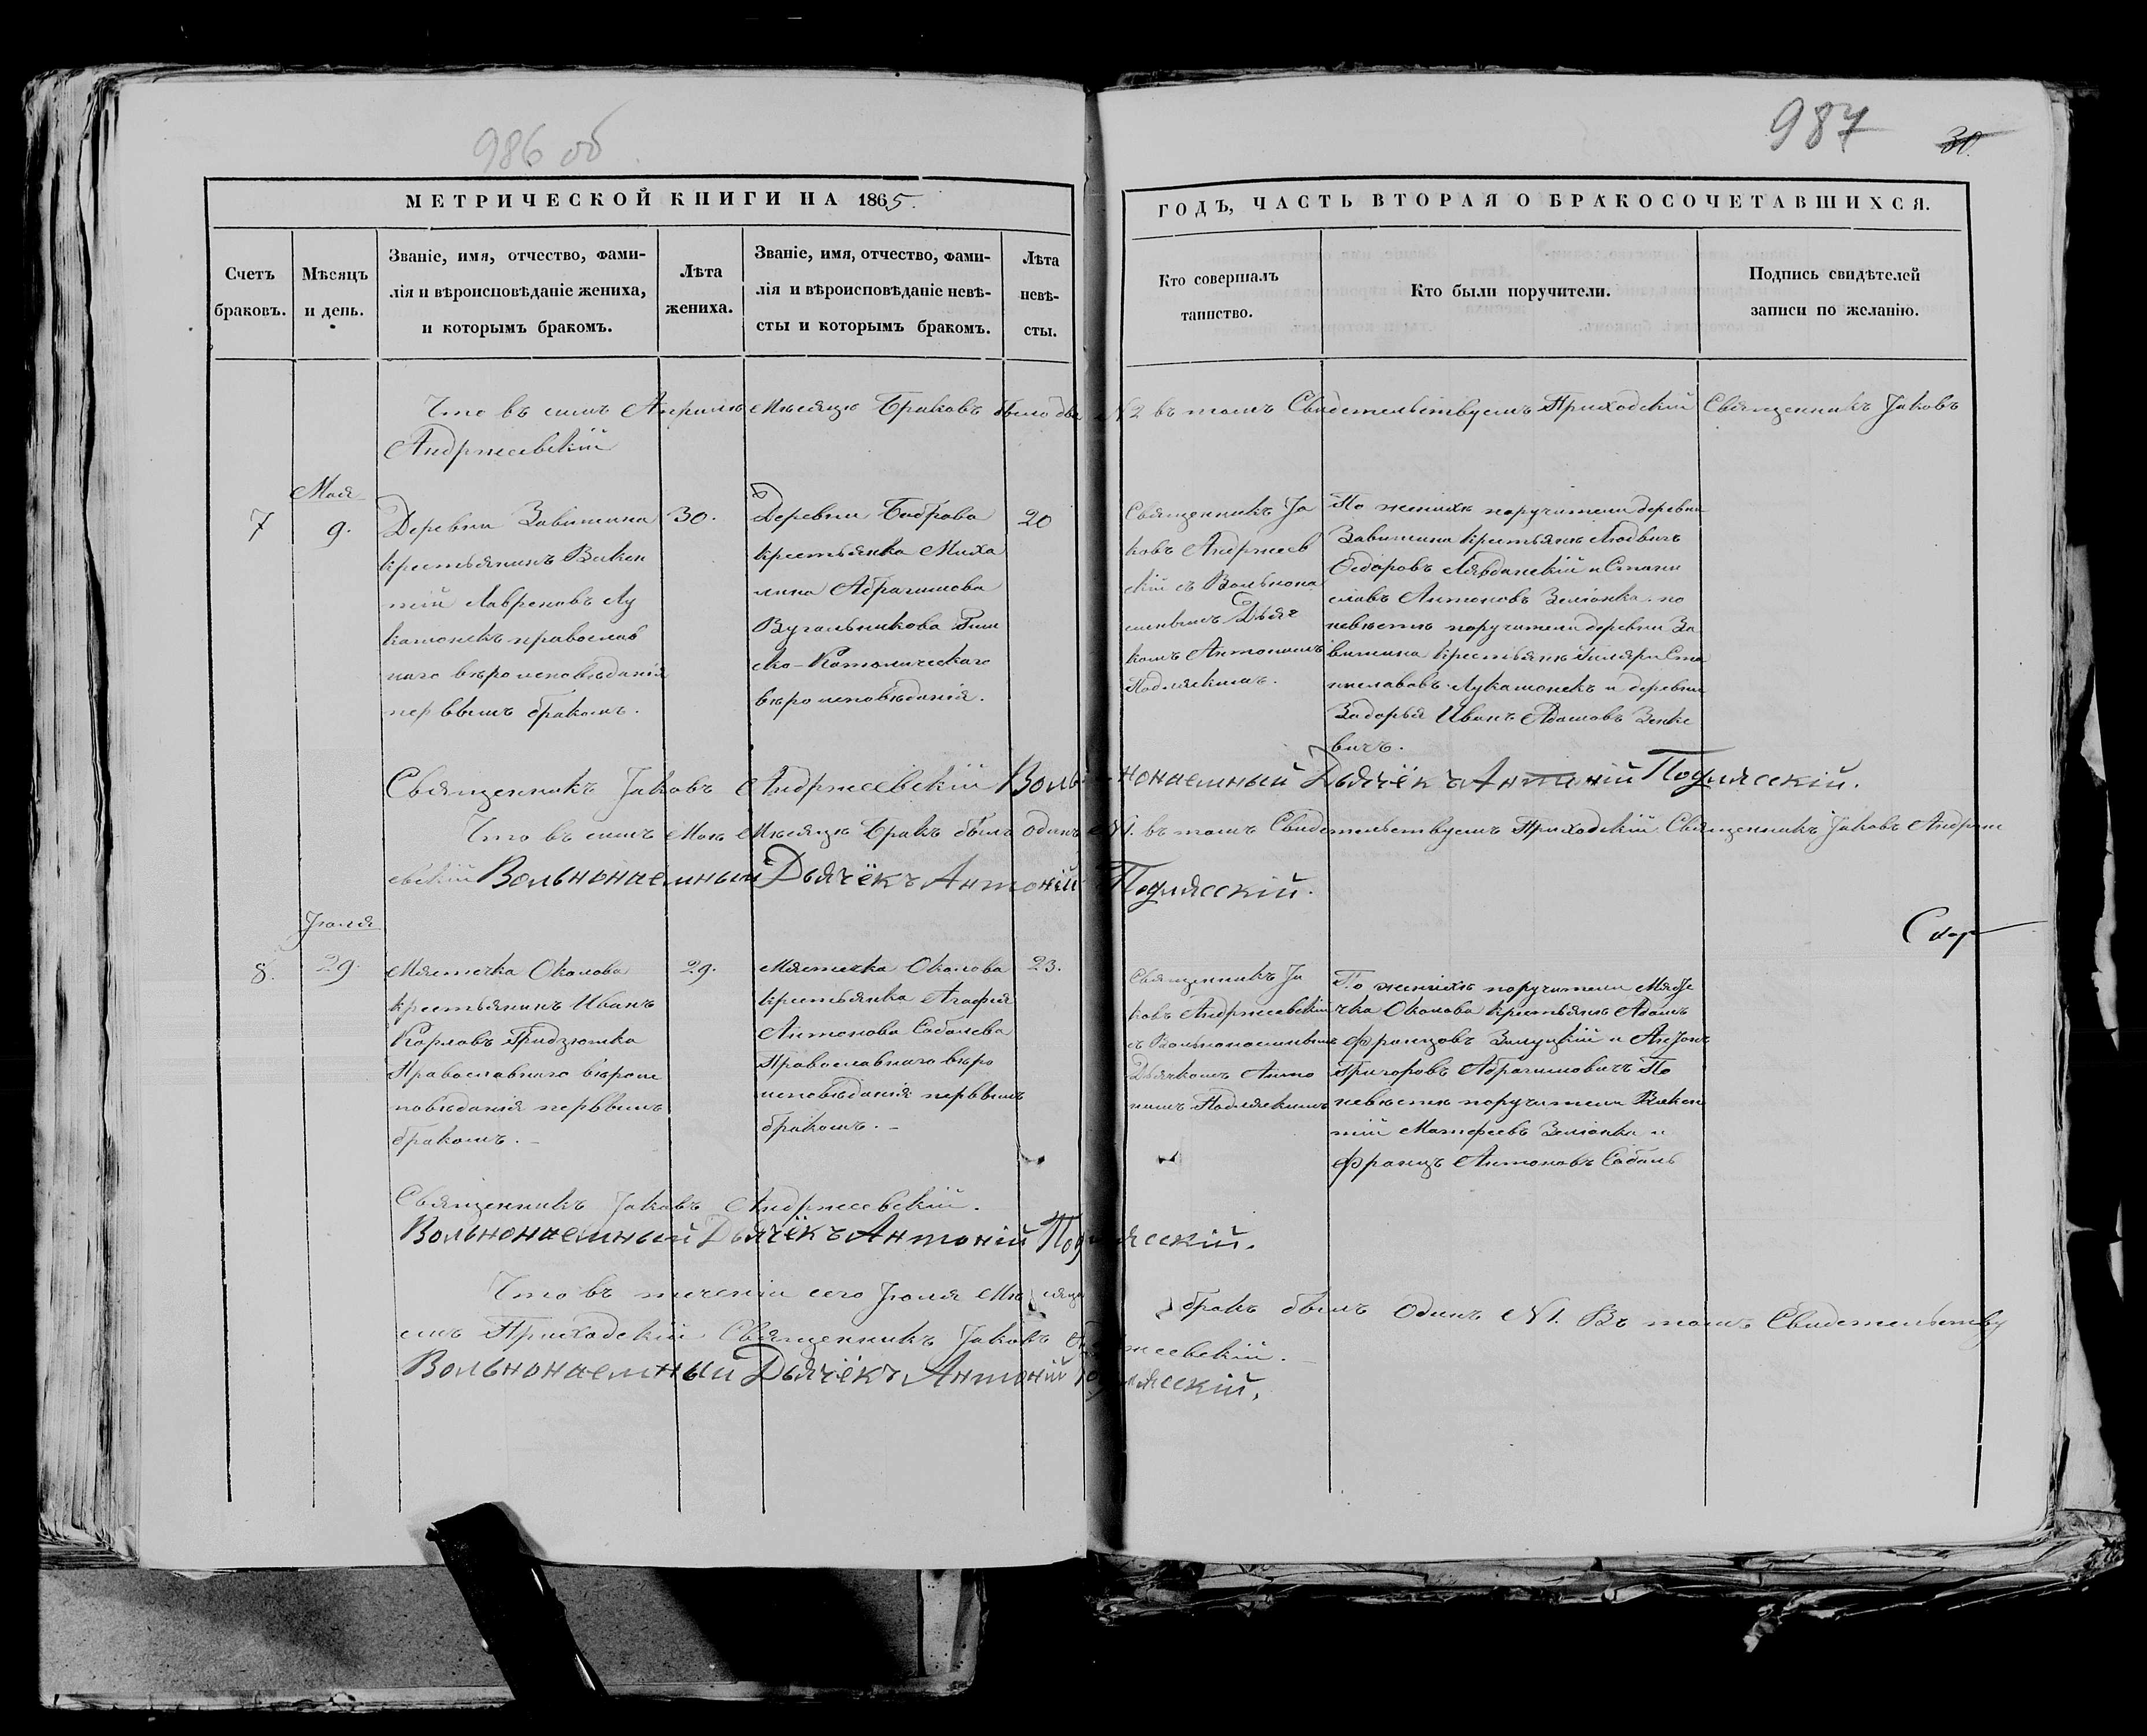 986 об
987
30.
МЕТРИЧЕСКОЙ КНИГИ НА 1865.
ГОДЪ, ЧАСТЬ ВТОРАЯ О БРАКОСОЧЕТАВШИХСЯ.
Счетъ
браковъ.
Мѣсяцъ
и день.
Званіе, имя, отчество, фами-
лія и вѣроисповѣданіе жениха,
и которымъ бракомъ.
Лѣта
жениха.
Званіе, имя, отчество, фами-
лія и вѣроисповѣданіе невѣ-
сты и которымъ бракомъ.
Лѣта
невѣ-
сты.
Кто совершалъ
таинство.
Кто были поручители.
Подпись свидѣтелей
записи по желанію.
Что въ семъ Априлѣ Мѣсяцѣ Браковъ было два №2 въ томъ Свидетельствуемъ Приходскій Священникъ Іаковъ
Андржеевскій
7
Мая
9.
Деревни Завишина
крестьянинъ Викен
тій Лавреновъ Лу
кашонекъ православ
наго вѣроисповѣданія
перввымъ бракомъ.
30.
Деревни Боброва
крестьянка Миха
лина Абрагимова
Вугальникова Рим
ско-Католическаго
вѣроисповѣданія.
20
Священникъ Іа
ковъ Андржеев
скій съ Вольнона
емнымъ Дьяч
комъ Антониемъ
Подляскимъ.
По женихѣ поручители деревни
Завишина крестьяне Людвигъ
Федоровъ Лявданскій и Стани
славъ Антоновъ Зеліонка по
невѣстѣ поручители деревни За
вишина крестьяне Гиляри Ста
ниславовъ Лукашонекъ и деревни
Задорья Иванъ Адамовъ Зенке
вичъ.
Священникъ Іаковъ Андржеевскій Вольнонаемный Дьячёкъ Антоній Подлясскій.
Что въ семъ Маѣ Мѣсяцѣ бракъ былъ одинъ №1. въ томъ Свидетельствуемъ Приходскій Священникъ Іаковъ Андрже
евскій Вольнонаемный Дьячёкъ Антоній Подлясскій.
8.
Іюля
29.
Мястечка Околова
крестьянинъ Иванъ
Карловъ Гридзюшка
Православнаго вѣроис
повѣданія перввымъ
бракомъ. –
29.
Мястечка Околова
крестьянка Агафія
Антонова Соболева
Православнаго вѣро
исповѣданія перввымъ
бракомъ. –
23.
Священникъ Іа
ковъ Андржеевскій
съ Вольнонаемнымъ
Дьячкомъ Анто
ниемъ Подляскимъ
По женихѣ поручители Мяст
чка Околова крестьяне Адамъ
Францовъ Залуцкій и Антонъ
Григоровъ Абрагимовичъ По
невѣстѣ поручители Викен
тій Матфеевъ Зеліонка и
Францъ Антоновъ Соболь
Священникъ Іаковъ Андржеевскій.
Вольнонаемный Дьячёкъ Антоній Подлясскій.
Что въ теченіи сего Іюля Мѣсяца бракъ былъ одинъ №1. Въ томъ Свидетельству
емъ Приходскій Священникъ Іаковъ Андржеевскій. –
Вольнонаемный Дьячёкъ Антоній Подлясскій.